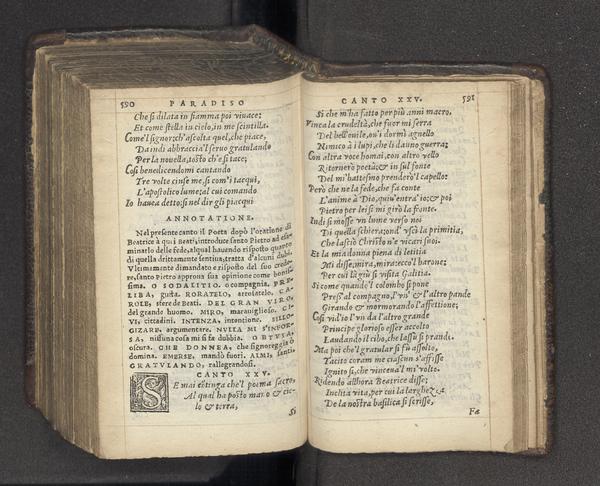 590 PARADISO
Che si dilata in fiamma poi viuace;
Et come stella in cielo, in me scintilla.
Come'l signor; ch'ascolta quel, che piace,
Da indi abbraccia'l seruo gratulando
Per la nouella, tosto ch'e si tace;
Cosi benedicendomi cantando
Tre volte cinse me, si com'i tacqui,
L'apostolico lume; al cui comando
Io hauea detto: si nel dir gli piacqui
ANNOTATIONE.
Nel presente canto il Poeta dopò l'oratione di
Beatrice à qui i Beati, introduce santo Pietro ad esa-
minarlo delle fede, al qual hauendo risposto quanto
di quella drittamente sentiua, tratta d'alcuni dubbi.
Vltimamente dimandato e risposto del suo crede-
re, santo Pietro approua sua opinione come bonissi-
sima. O SODALITIO. o compagnia. PRE-
LIBA, gusta. ROTATELO, arrotatelo. CA-
ROLE, sfere de Beati. DEL GRAN VIRO,
del grande huomo. MIRO, marauiglioso. CI-
VI, cittadini. INTENZA, intentione. SILLO-
GIZARE, argumentare. NVLLA MI S'INFOR-
SA, nissuna cosa mi si fa dubbia. OBTVSA,
oscura. CHE DONNEA, che signoreggia ò
domina. EMERSE, mandò fuori. ALMI, santi.
GRATVLANDO, rallegrandosi.
CANTO XXV.
SE mai côtinga che'l poema sacro,
Al qual ha posto mano & cie-
lo & terra,
Si
CANTO XXV. 591
Si che m'ha fatto per più anni macro,
Vinca la crudeltà, che fuor mi serra
Del bell'ouile, ou'i dormì agnello
Nimico à i lupi, che li danno guerra;
Con altra voce homai, con altro vello
Ritornerò poeta; & in sul fonte
Del mi' battesmo prenderò'l capello:
Però che ne la fede, che fa conte
L'anime à Dio, quiu'entra' io; & poi
Pietro per lei si mi girò la fronte.
Indi si mosse vn lume verso noi
Di quella schiera; ond' vscì la primitia,
Che lasciò Christo n'e vicari suoi.
Et la mia donna piena di letitia
Mi disse, mira, mira: ecco'l barone;
Per cui là giù si visita Galitia.
Si come quando'l colombo si pone
Press'al compagno, l'vn' & l'altro pande
Girando & mormorando l'affettione;
Cosi vid'io l'vn da l'altro grande
Principe glorioso esser accolto
Laudando il cibo, che lassù si prandi.
Ma poi che'l gratular si fù assolto,
Tacito coram me ciascun s'affisse
Ignito sì, che vincea'l mi' volto.
Ridendo allhora Beatrice disse;
Inclita vita, per cui la larghezza
De la nostra basilica si scrisse,
Fa